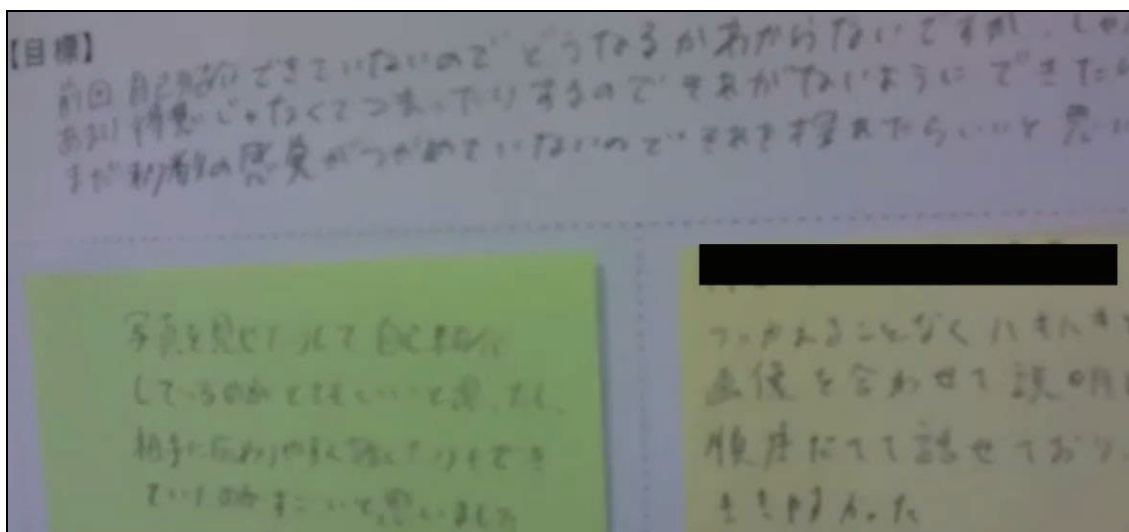 【目標】
前回自己紹介できていないのでどうなるかわからないですが、しゃ
あまり得意じゃなくてつまったりするのでそれがないようにできたら
まだ秒数の感覚がつかめていないのでそれを掴めたらいいと思い
写真を見せていて自己紹介
しているのがとてもいいと思ったし、
相手に伝わりやすく話したりもでき
ていたのですごいと思いました
つっかえることなくハキハキと
画像を合わせて説明
順序だてて話せており、
ききやすかった